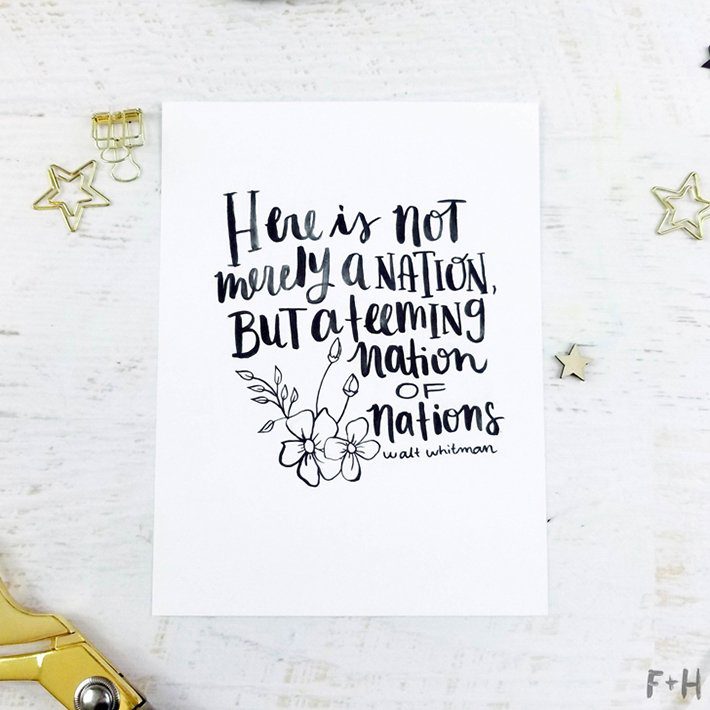 Here is not
merely a NATION,
BUT a teeming
nation
OF
nations
walt whitman
F+H